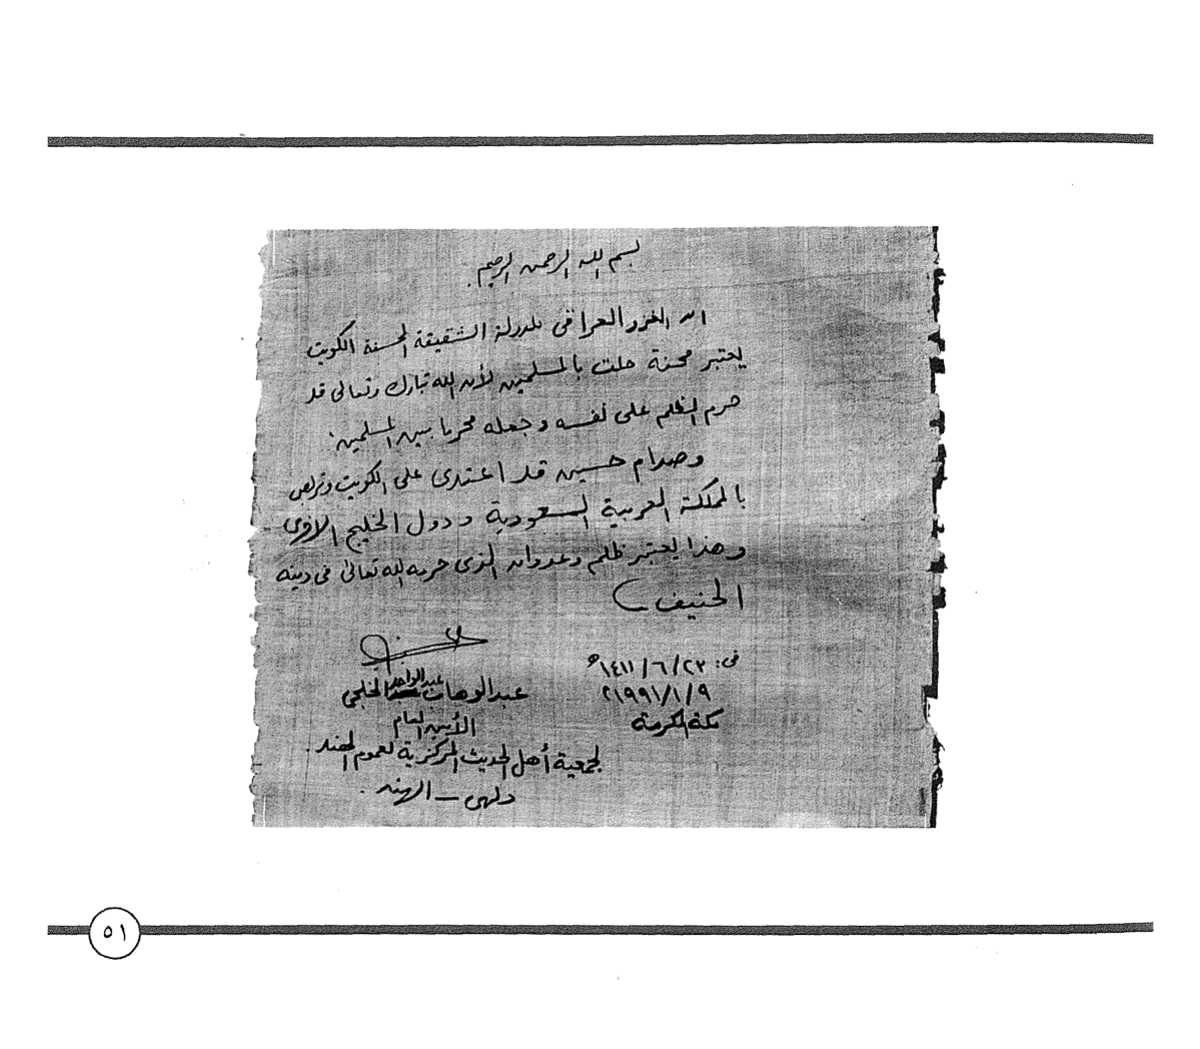 بسم الله الرحمن الرحيم.
ان الغزو العراقى للدولة الشقيقة المحسنة الكويت
يعتبر محنة حلت بالمسلمين لأن الله تبارك وتعالى قد
حرم الظلم على نفسه وجعله محرما بين المسلمين.
وصدام حسين قد اعتدى على الكويت وتربص
بالمملكة العربية السعودية ودول الخليج الاخرى
وهذا يعتبر ظلم وعدوان الذى حرمه الله تعالى فى دينه
الحنيف
فى: ٢٣/٦/١٤١١ه
٩/١/١٩٩١م
مكة المكرمة
عبدالواحد
عبدالوهاب الخلجى
الأمين العام
لجمعية أهل الحديث المركزية لعموم الهند.
دلهى – الهند.
٥١